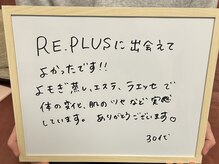 RE.PLUSに出会えて
よかったです!!
よもぎ蒸し、エステ、ラエッセで
体の変化と、肌のツヤなど実感
しています。ありがとうございます♡
30代